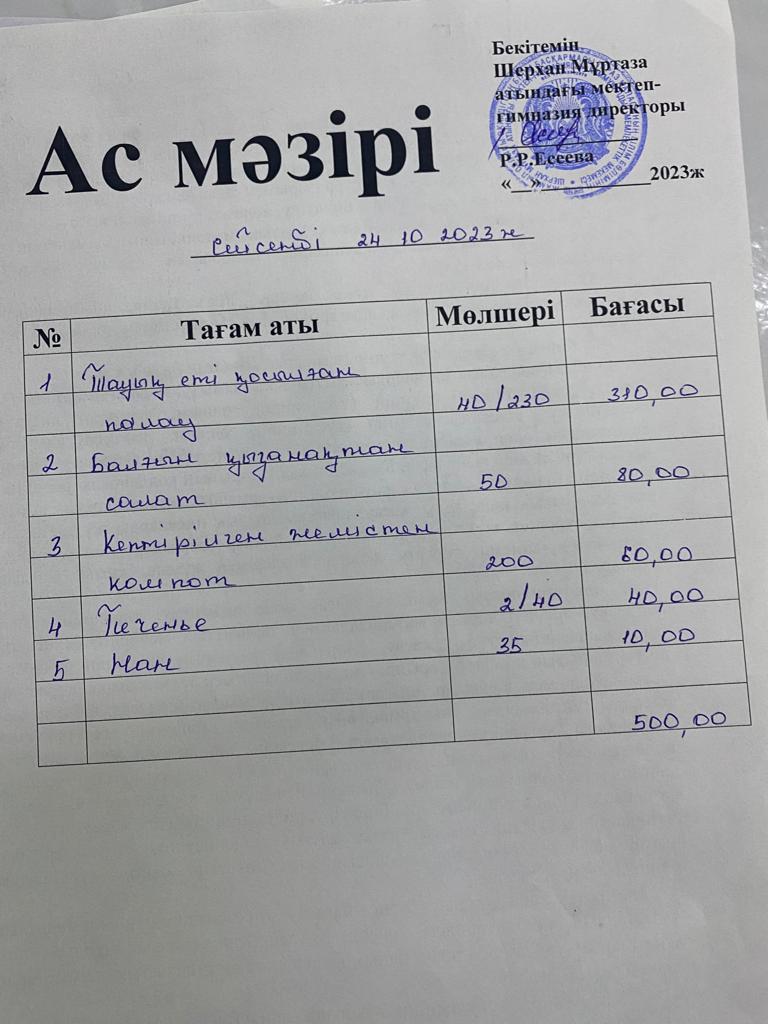 Бекітемін
Шерхан Мұртаза
атындағы мектеп-
гимназия директоры
Р.Р.Есеева
«__»____________2023ж
Ас мәзірі
Сейсенбі 24 10 2023 ж
№ Тағам аты Мөлшері Бағасы
1 Тауық еті қосылған
палау 40/230 310,00
2 Балғын қызанақтан
салат 50 80,00
3 Кептірілген жемістен
компот 200 60,00
4 Печенье 2/40 40,00
5 Нан 35 10,00
500,00